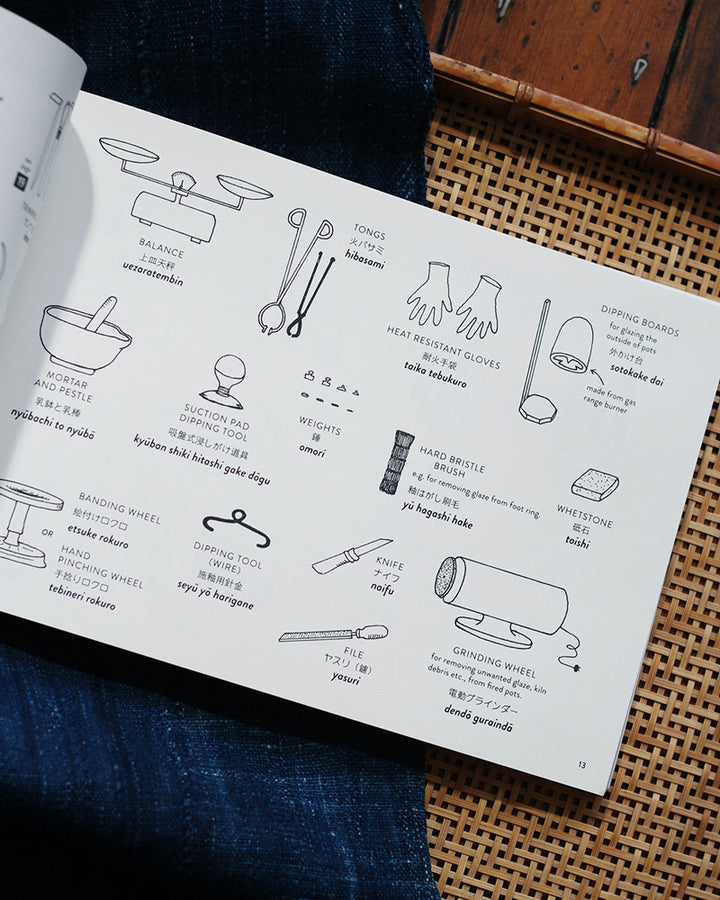 BALANCE
上皿天秤
uezaratembin
TONGS
火バサミ
hibasami
HEAT RESISTANT GLOVES
耐火手袋
taika tebukuro
DIPPING BOARDS
for glazing the
outside of pots
外がけ台
sotokake dai
made from gas
range burner
MORTAR
AND PESTLE
乳鉢と乳棒
nyūbachi to nyūbō
SUCTION PAD
DIPPING TOOL
吸盤式浸しがけ道具
kyūban shiki hitashi gake dōgu
WEIGHTS
錘
omori
HARD BRISTLE
BRUSH
e.g. for removing glaze from foot ring.
釉はがし刷毛
yū hagashi hake
WHETSTONE
砥石
toishi
BANDING WHEEL
絵付けロクロ
etsuke rokuro
OR
HAND
PINCHING WHEEL
手捻りロクロ
tebineri rokuro
DIPPING TOOL
(WIRE)
施釉用針金
seyū yō harigane
KNIFE
ナイフ
naifu
FILE
ヤスリ（鑢）
yasuri
GRINDING WHEEL
for removing unwanted glaze, kiln
debris etc., from fired pots.
電動グラインダー
dendō guraindā
13